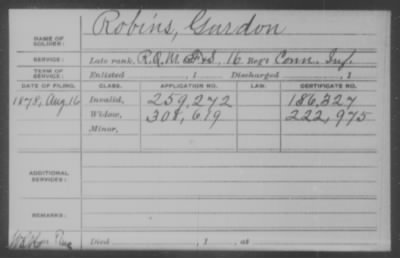 Robins, Gurdon
NAME OF SOLDIER:
SERVICE: Late rank, R.Q.M. F&S, 16 Reg't Conn. Inf.
TERM OF SERVICE: Enlisted , 1 Discharged , 1
DATE OF FILING. CLASS. APPLICATION NO. LAW. CERTIFICATE NO.
1878, Aug 16 Invalid, 259,272 186,327
Widow, 308,619 222,975
Minor,
ADDITIONAL SERVICES:
REMARKS:
Died , 1 , at